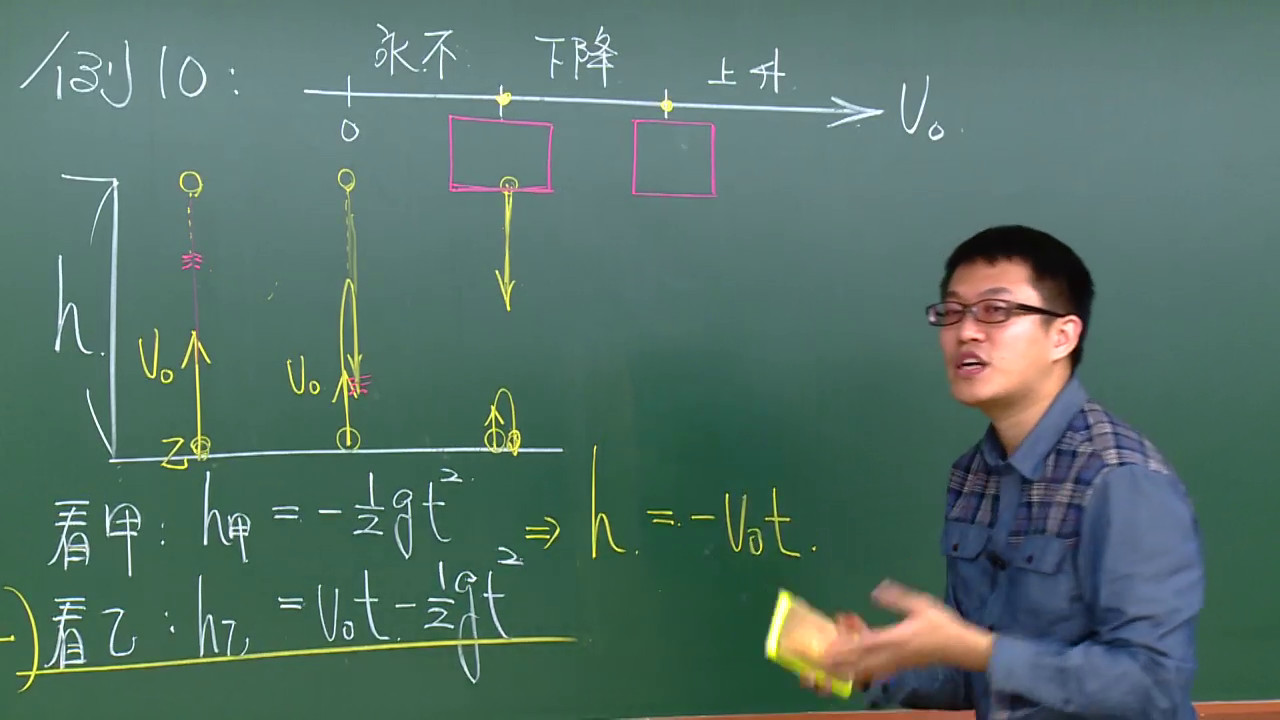 例10:
永不 下降 上升
0 V₀.
h.
V₀ V₀
乙
看甲: h甲 = -½gt² ⇒ h. = -V₀t.
-) 看乙: h乙 = V₀t - ½gt²